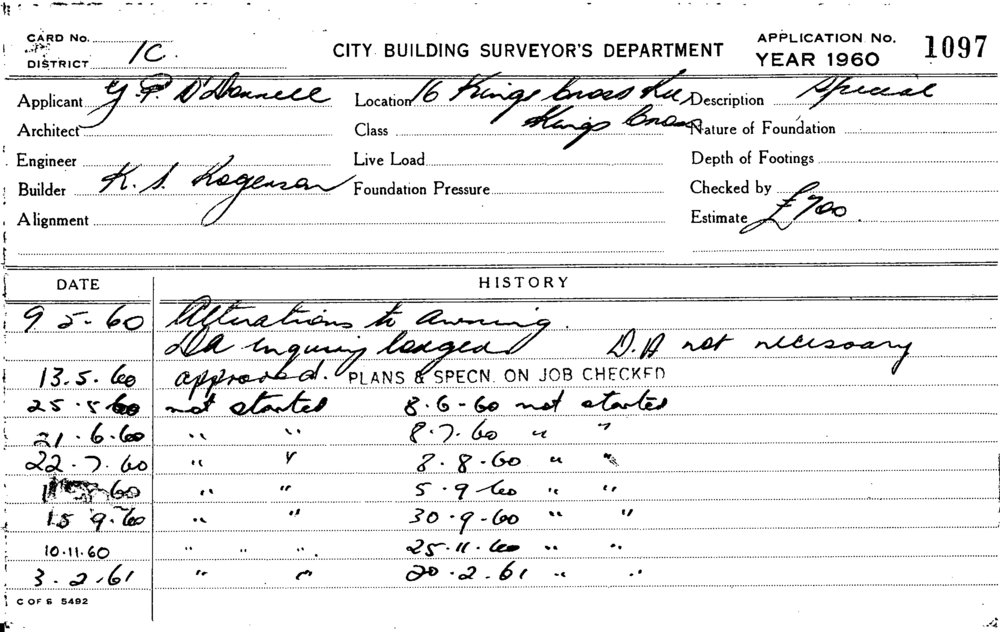 CARD No.
DISTRICT 1C.
CITY BUILDING SURVEYOR'S DEPARTMENT
APPLICATION No. 1097
YEAR 1960
Applicant G P. O'Donnell Location 16 Kings Cross Description Special
Architect Class Kings Cross Nature of Foundation
Engineer Live Load Depth of Footings
Builder K. S. Foundation Pressure Checked by
Alignment Estimate £700.
DATE HISTORY
9 5-60 Alterations to awning.
DA inquiry lodged D.A not necessary
13.5.60 approved. PLANS & SPECN. ON JOB CHECKED
25.5.60 not started 8.6-60 not started
21.6.60 " " 8.7.60 " "
22.7.60 " " 8.8.60 " "
60 " " 5.9.60 " "
15 9.60 " " 30.9-60 " "
10.11.60 " " " 25.11.60 " "
3.2.61 " " 20.2.61 " "
C OF S 5492